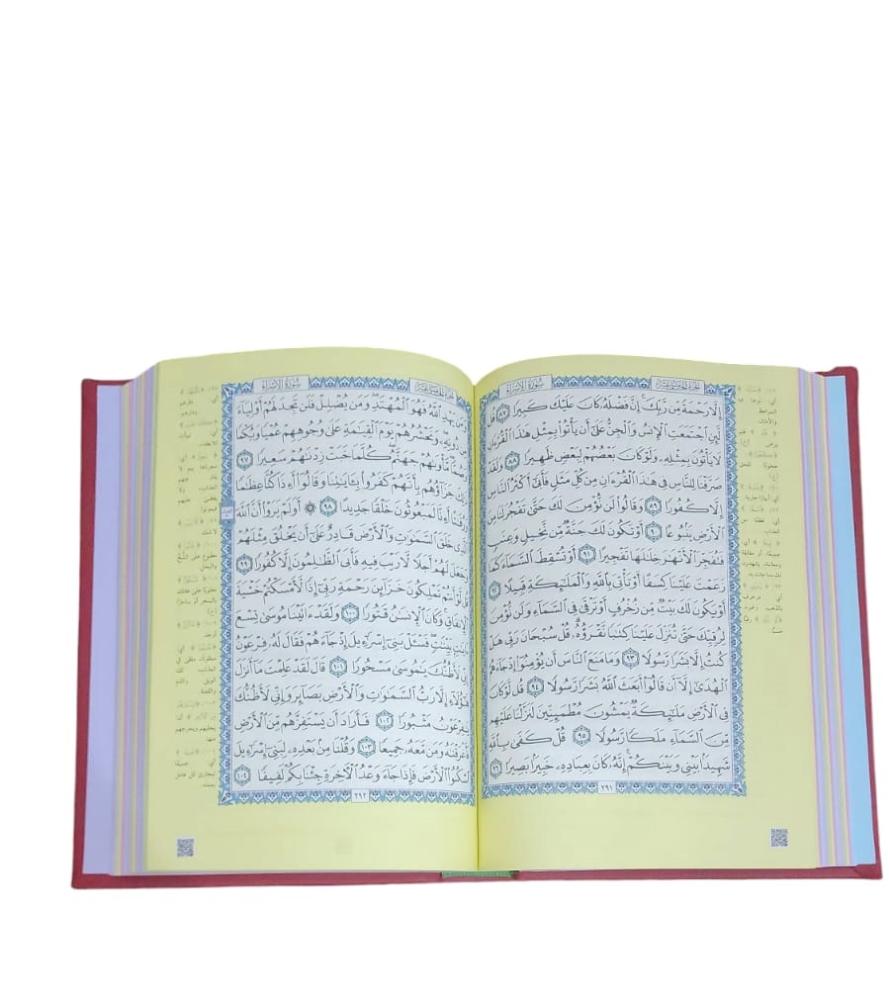 سُورَةُ الإِسْرَاءِ الجُزْءُ الخَامِسَ عَشَرَ
إِلَّا رَحْمَةً مِّن رَّبِّكَۚ إِنَّ فَضْلَهُۥ كَانَ عَلَيْكَ كَبِيرًا ٨٧ قُل
لَّئِنِ ٱجْتَمَعَتِ ٱلْإِنسُ وَٱلْجِنُّ عَلَىٰٓ أَن يَأْتُوا۟ بِمِثْلِ هَٰذَا ٱلْقُرْءَانِ
لَا يَأْتُونَ بِمِثْلِهِۦ وَلَوْ كَانَ بَعْضُهُمْ لِبَعْضٍ ظَهِيرًا ٨٨ وَلَقَدْ
صَرَّفْنَا لِلنَّاسِ فِى هَٰذَا ٱلْقُرْءَانِ مِن كُلِّ مَثَلٍ فَأَبَىٰٓ أَكْثَرُ ٱلنَّاسِ
إِلَّا كُفُورًا ٨٩ وَقَالُوا۟ لَن نُّؤْمِنَ لَكَ حَتَّىٰ تَفْجُرَ لَنَا مِنَ
ٱلْأَرْضِ يَنۢبُوعًا ٩٠ أَوْ تَكُونَ لَكَ جَنَّةٌ مِّن نَّخِيلٍ وَعِنَبٍ
فَتُفَجِّرَ ٱلْأَنْهَٰرَ خِلَٰلَهَا تَفْجِيرًا ٩١ أَوْ تُسْقِطَ ٱلسَّمَآءَ كَمَا
زَعَمْتَ عَلَيْنَا كِسَفًا أَوْ تَأْتِىَ بِٱللَّهِ وَٱلْمَلَٰٓئِكَةِ قَبِيلًا ٩٢
أَوْ يَكُونَ لَكَ بَيْتٌ مِّن زُخْرُفٍ أَوْ تَرْقَىٰ فِى ٱلسَّمَآءِ وَلَن نُّؤْمِنَ
لِرُقِيِّكَ حَتَّىٰ تُنَزِّلَ عَلَيْنَا كِتَٰبًا نَّقْرَؤُهُۥۗ قُلْ سُبْحَانَ رَبِّى هَلْ
كُنتُ إِلَّا بَشَرًا رَّسُولًا ٩٣ وَمَا مَنَعَ ٱلنَّاسَ أَن يُؤْمِنُوٓا۟ إِذْ جَآءَهُمُ
ٱلْهُدَىٰٓ إِلَّآ أَن قَالُوٓا۟ أَبَعَثَ ٱللَّهُ بَشَرًا رَّسُولًا ٩٤ قُل لَّوْ كَانَ
فِى ٱلْأَرْضِ مَلَٰٓئِكَةٌ يَمْشُونَ مُطْمَئِنِّينَ لَنَزَّلْنَا عَلَيْهِم
مِّنَ ٱلسَّمَآءِ مَلَكًا رَّسُولًا ٩٥ قُلْ كَفَىٰ بِٱللَّهِ
شَهِيدًۢا بَيْنِى وَبَيْنَكُمْۚ إِنَّهُۥ كَانَ بِعِبَادِهِۦ خَبِيرًۢا بَصِيرًا ٩٦
٢٩١
الجُزْءُ الخَامِسَ عَشَرَ سُورَةُ الإِسْرَاءِ
وَمَن يَهْدِ ٱللَّهُ فَهُوَ ٱلْمُهْتَدِۖ وَمَن يُضْلِلْ فَلَن تَجِدَ لَهُمْ أَوْلِيَآءَ
مِن دُونِهِۦۖ وَنَحْشُرُهُمْ يَوْمَ ٱلْقِيَٰمَةِ عَلَىٰ وُجُوهِهِمْ عُمْيًا وَبُكْمًا
وَصُمًّاۖ مَّأْوَىٰهُمْ جَهَنَّمُۖ كُلَّمَا خَبَتْ زِدْنَٰهُمْ سَعِيرًا ٩٧
ذَٰلِكَ جَزَآؤُهُم بِأَنَّهُمْ كَفَرُوا۟ بِـَٔايَٰتِنَا وَقَالُوٓا۟ أَءِذَا كُنَّا عِظَٰمًا
وَرُفَٰتًا أَءِنَّا لَمَبْعُوثُونَ خَلْقًا جَدِيدًا ٩٨ ۞ أَوَلَمْ يَرَوْا۟ أَنَّ ٱللَّهَ
ٱلَّذِى خَلَقَ ٱلسَّمَٰوَٰتِ وَٱلْأَرْضَ قَادِرٌ عَلَىٰٓ أَن يَخْلُقَ مِثْلَهُمْ
وَجَعَلَ لَهُمْ أَجَلًا لَّا رَيْبَ فِيهِ فَأَبَى ٱلظَّٰلِمُونَ إِلَّا كُفُورًا ٩٩
قُل لَّوْ أَنتُمْ تَمْلِكُونَ خَزَآئِنَ رَحْمَةِ رَبِّىٓ إِذًا لَّأَمْسَكْتُمْ خَشْيَةَ
ٱلْإِنفَاقِۚ وَكَانَ ٱلْإِنسَٰنُ قَتُورًا ١٠٠ وَلَقَدْ ءَاتَيْنَا مُوسَىٰ تِسْعَ
ءَايَٰتٍۭ بَيِّنَٰتٍۖ فَسْـَٔلْ بَنِىٓ إِسْرَٰٓءِيلَ إِذْ جَآءَهُمْ فَقَالَ لَهُۥ فِرْعَوْنُ
إِنِّى لَأَظُنُّكَ يَٰمُوسَىٰ مَسْحُورًا ١٠١ قَالَ لَقَدْ عَلِمْتَ مَآ أَنزَلَ
هَٰٓؤُلَآءِ إِلَّا رَبُّ ٱلسَّمَٰوَٰتِ وَٱلْأَرْضِ بَصَآئِرَ وَإِنِّى لَأَظُنُّكَ
يَٰفِرْعَوْنُ مَثْبُورًا ١٠٢ فَأَرَادَ أَن يَسْتَفِزَّهُم مِّنَ ٱلْأَرْضِ
فَأَغْرَقْنَٰهُ وَمَن مَّعَهُۥ جَمِيعًا ١٠٣ وَقُلْنَا مِنۢ بَعْدِهِۦ لِبَنِىٓ إِسْرَٰٓءِيلَ
ٱسْكُنُوا۟ ٱلْأَرْضَ فَإِذَا جَآءَ وَعْدُ ٱلْءَاخِرَةِ جِئْنَا بِكُمْ لَفِيفًا ١٠٤
٢٩٢